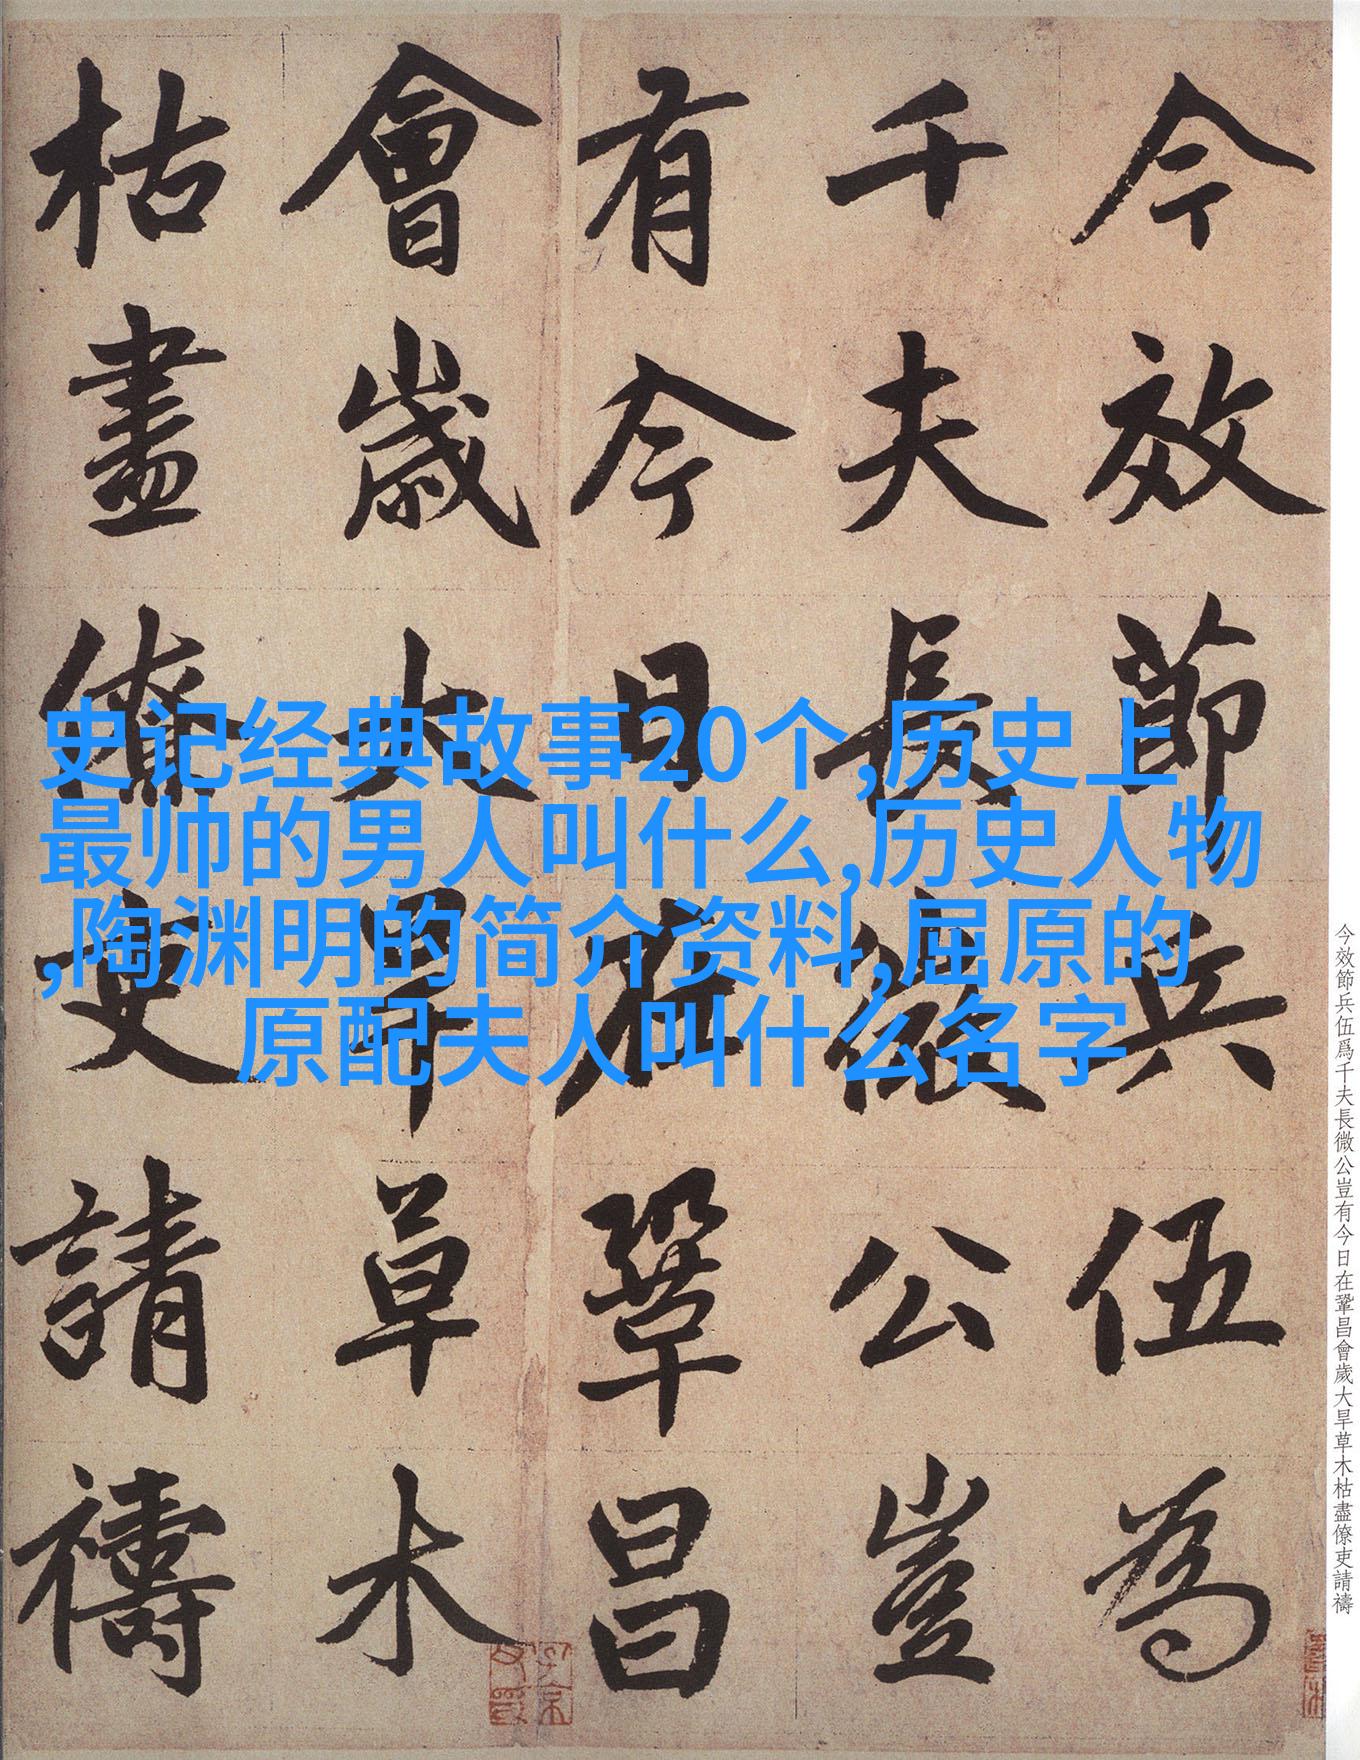 今效節兵伍為
千夫長微公豈
有今日在鞏昌
會歲大旱草木
枯盡僚吏請禱
史记经典故事20个,历史上
最帅的男人叫什么,历史人物
,陶渊明的简介资料,屈原的
原配夫人叫什么名字
今效節兵伍爲千夫長微公豈有今日在鞏昌會歲大旱草木枯盡僚吏請禱